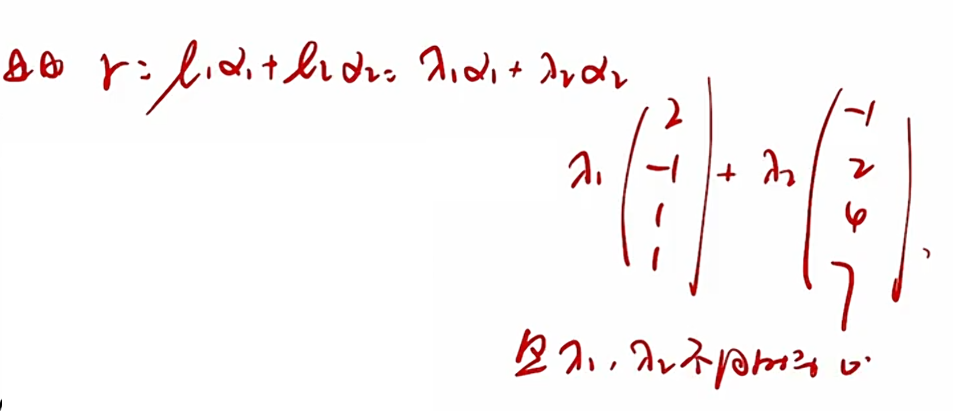 γ = l₁α₁ + l₂α₂ = λ₁α₁ + λ₂α₂
λ₁ (2 -1 1 1) + λ₂ (-1 2 4 7),
且 λ₁, λ₂ 不同时为 0.